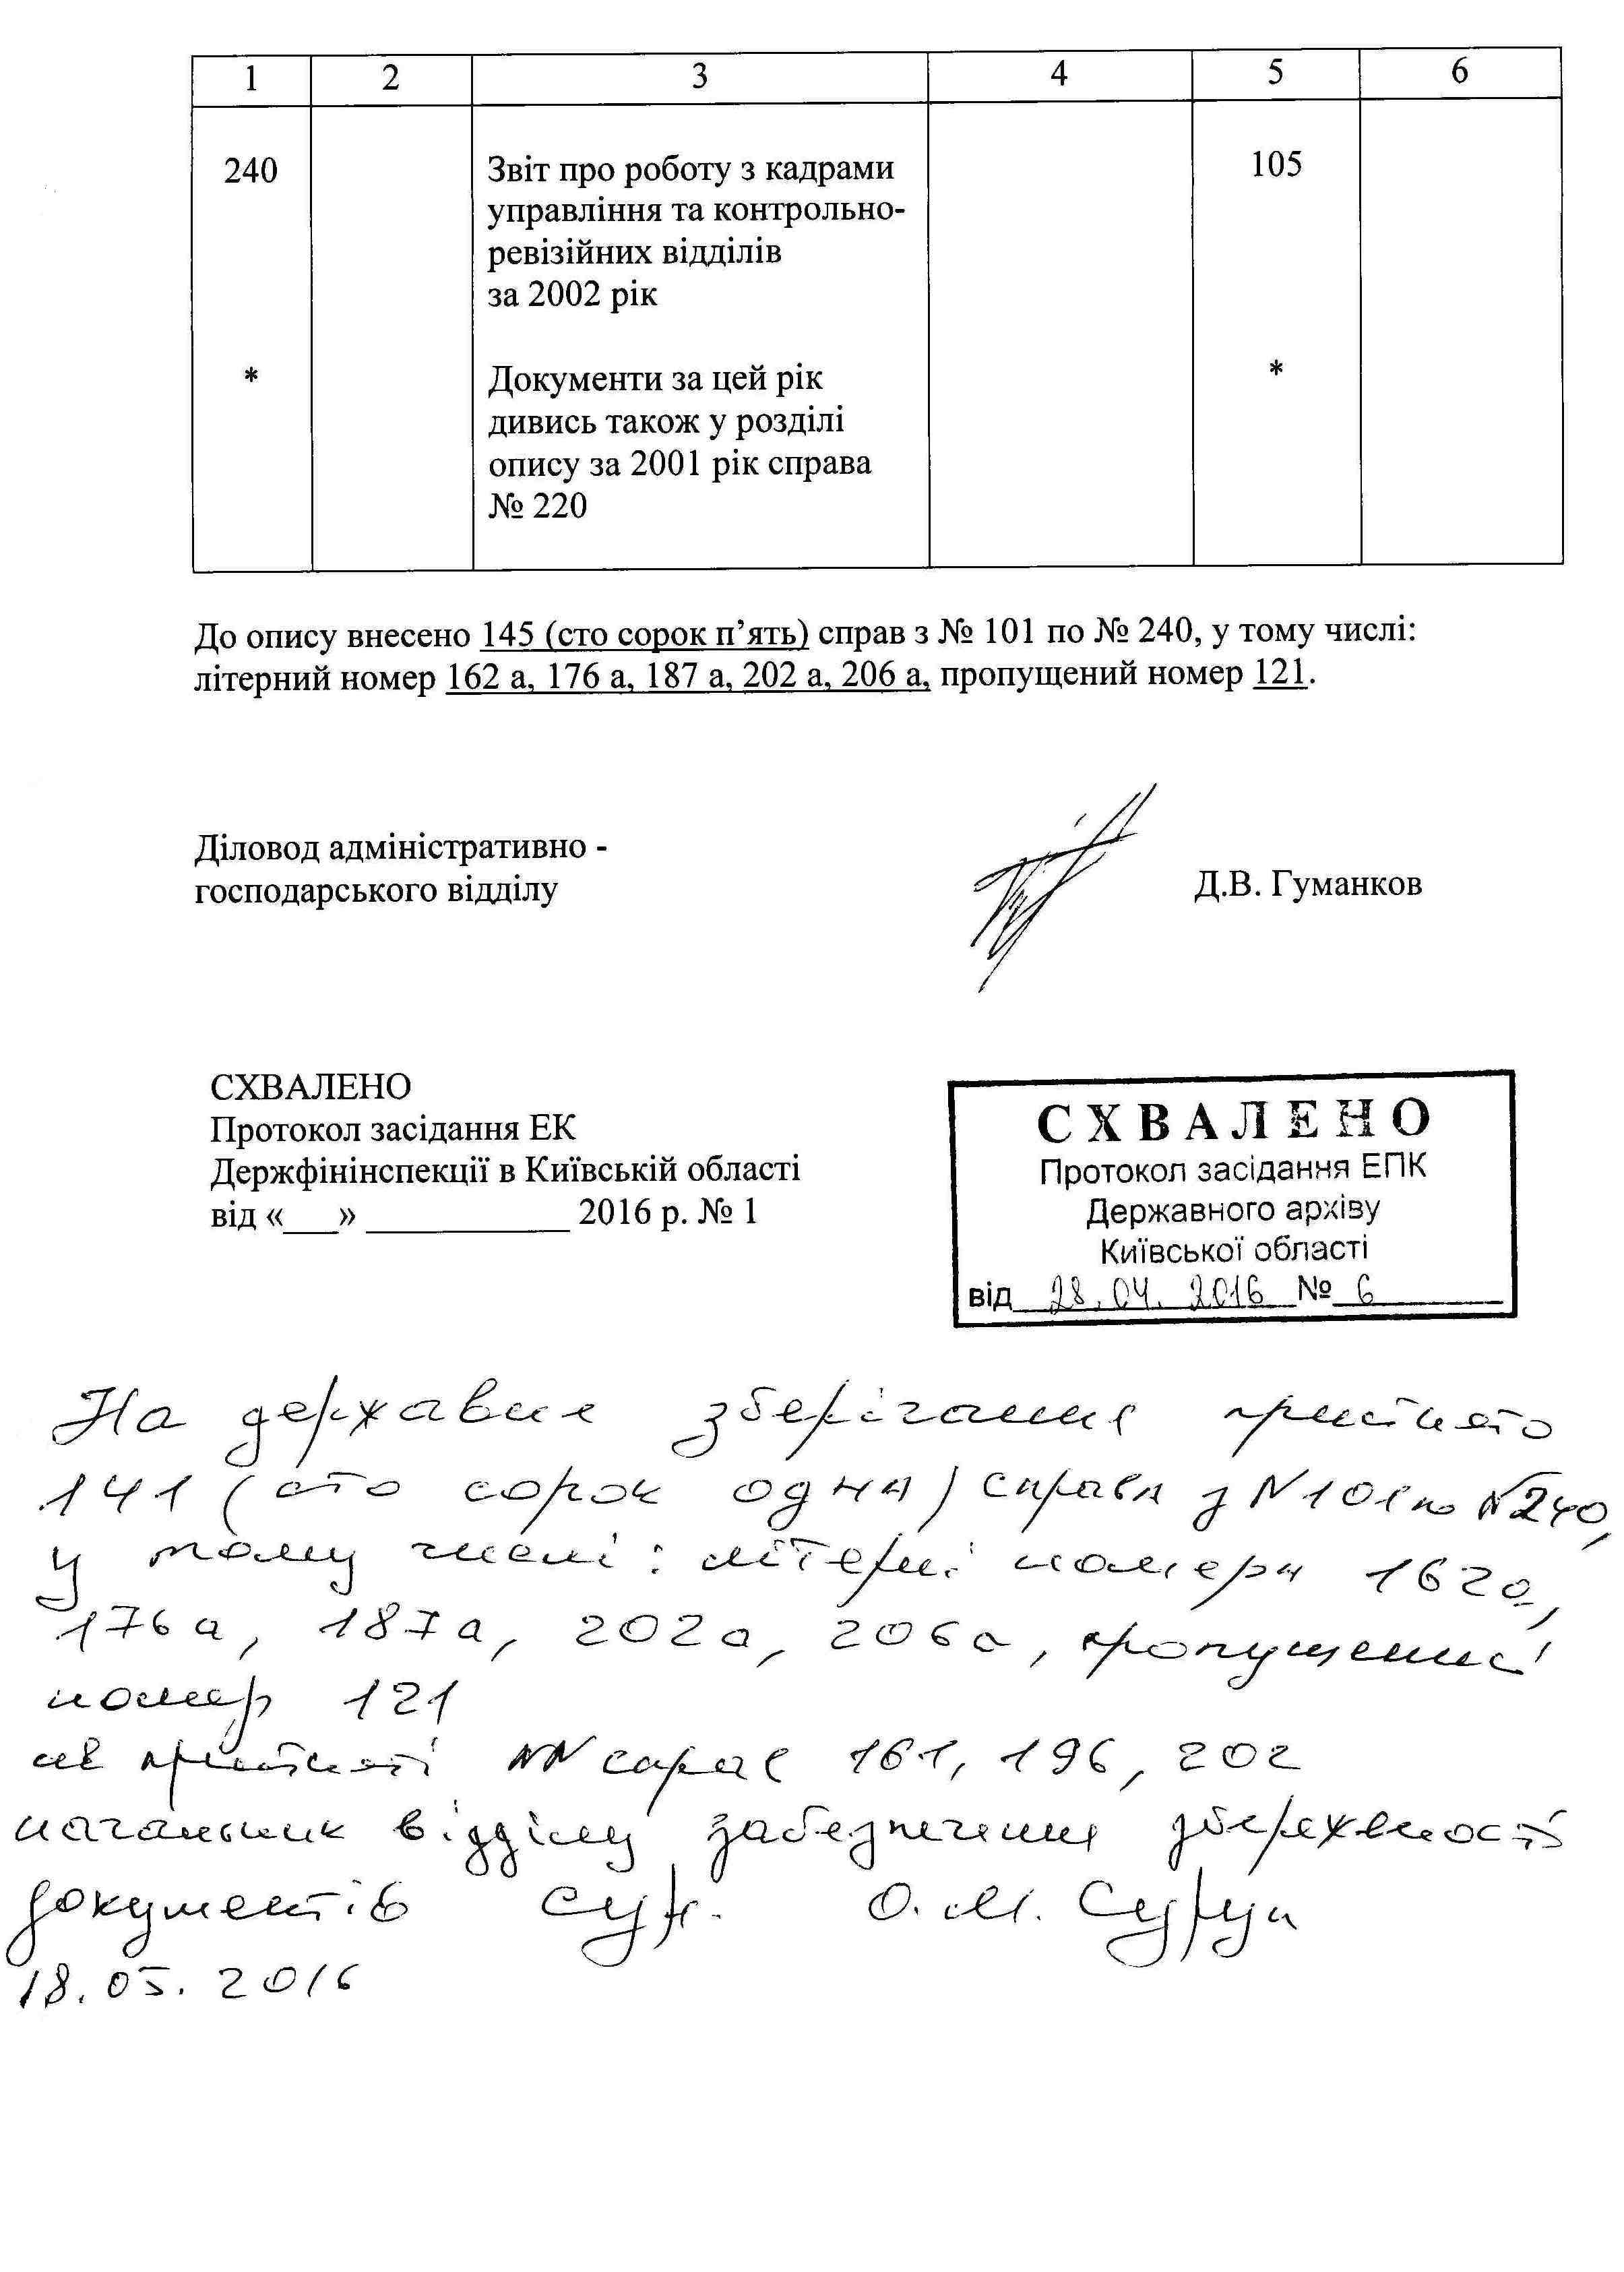 1 2 3 4 5 6
240 Звіт про роботу з кадрами 105
управління та контрольно-
ревізійних відділів
за 2002 рік
* Документи за цей рік *
дивись також у розділі
опису за 2001 рік справа
№ 220
До опису внесено 145 (сто сорок п’ять) справ з № 101 по № 240, у тому числі:
літерний номер 162 а, 176 а, 187 а, 202 а, 206 а, пропущений номер 121.
Діловод адміністративно -
господарського відділу Д.В. Гуманков
СХВАЛЕНО
Протокол засідання ЕК
Держфінінспекції в Київській області
від «___» ___________ 2016 р. № 1
СХВАЛЕНО
Протокол засідання ЕПК
Державного архіву
Київської області
від 28.04.2016 № 6
На державне зберігання прийнято
141 (сто сорок одна) справа з N 101 по N 240,
у тому числі: літерні номери 162а,
176а, 187а, 202а, 206а, пропущений
номер 121
не прийняті NN справ 161, 196, 202
начальник відділу забезпечення збереженості
документів О.М.
18.05.2016